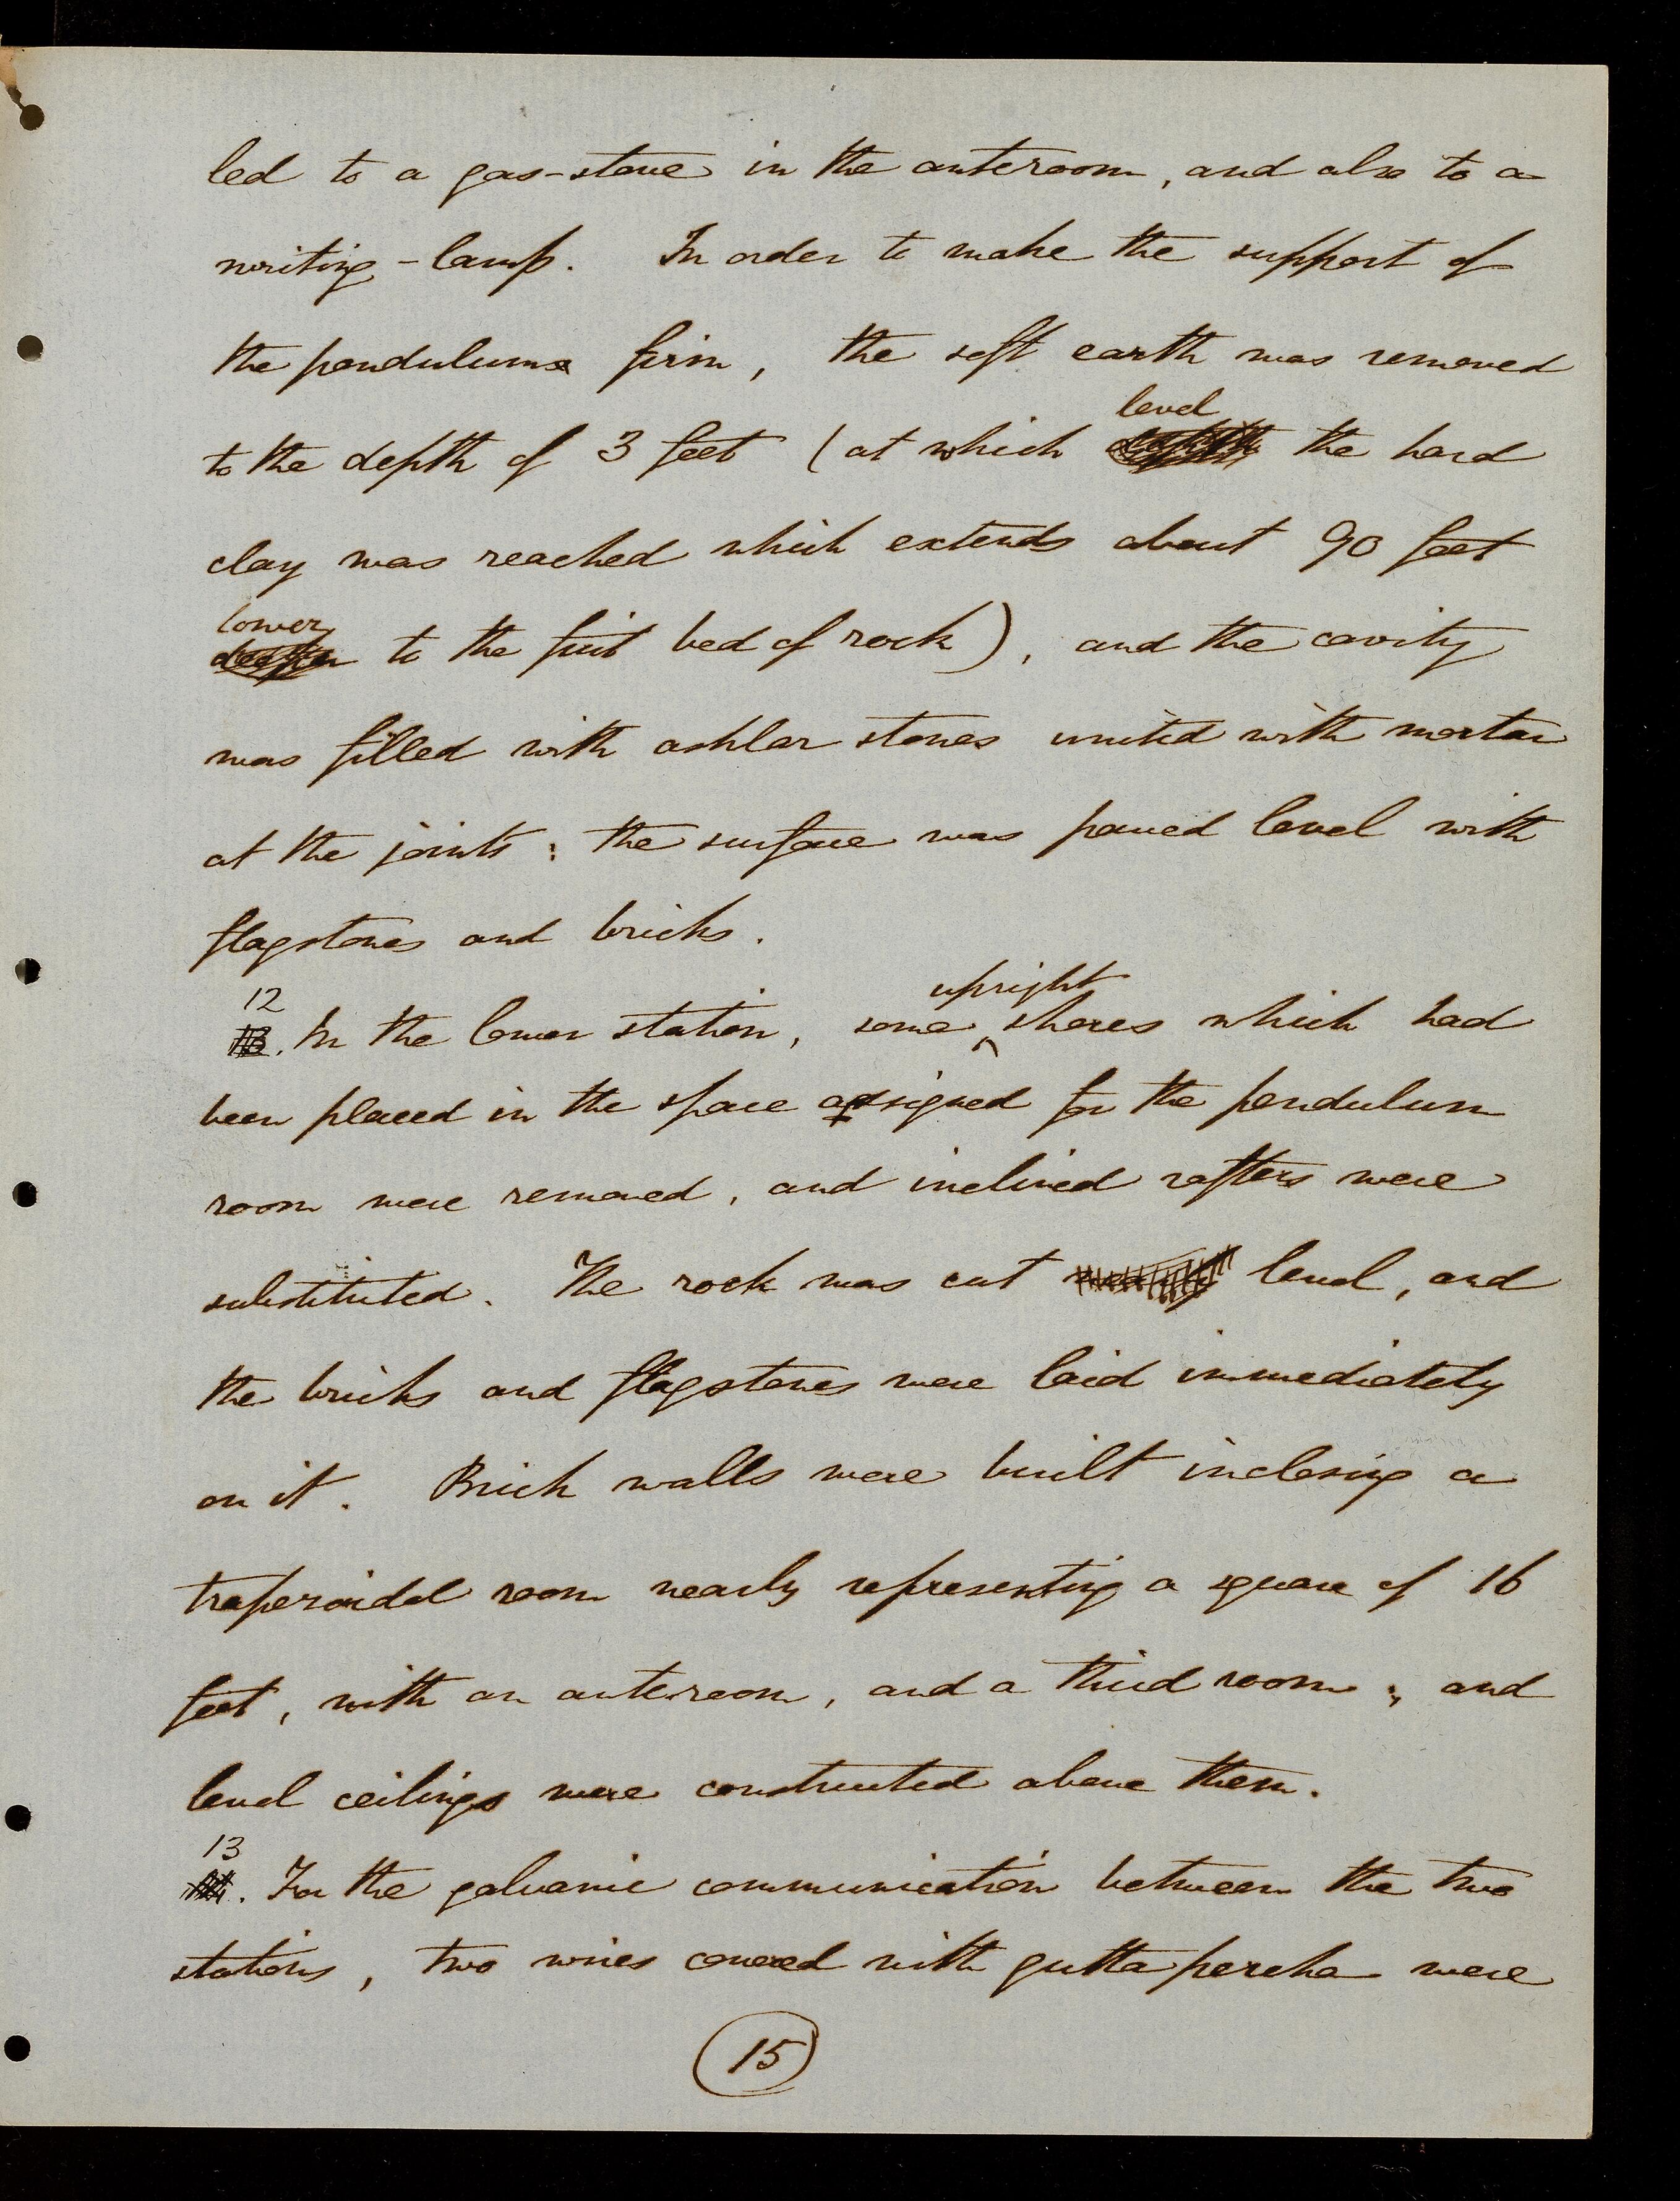 led to a gas-stove in the anteroom, and also to a
writing-lamp. In order to make the support of
the pendulums firm, the soft earth was removed
level
to the depth of 3 feet (at which depth the hard
clay was reached which extends about 90 feet
lower
deeper to the first bed of rock), and the cavity
was filled with ashlar stones united with mortar
at the joints: the surface was paved level with
flagstones and bricks.
12 upright
13. In the lower station, some shores which had
been placed in the space assigned for the pendulum
room were removed, and inclined rafters were
substituted. The rock was cut level, and
the bricks and flagstones were laid immediately
on it. Brick walls were built inclosing a
trapezoidal room nearly representing a square of 16
feet, with an ante-room, and a third room; and
level ceilings were constructed above them.
13
For the galvanic communication between the two
stations, two wires covered with gutta percha were
15